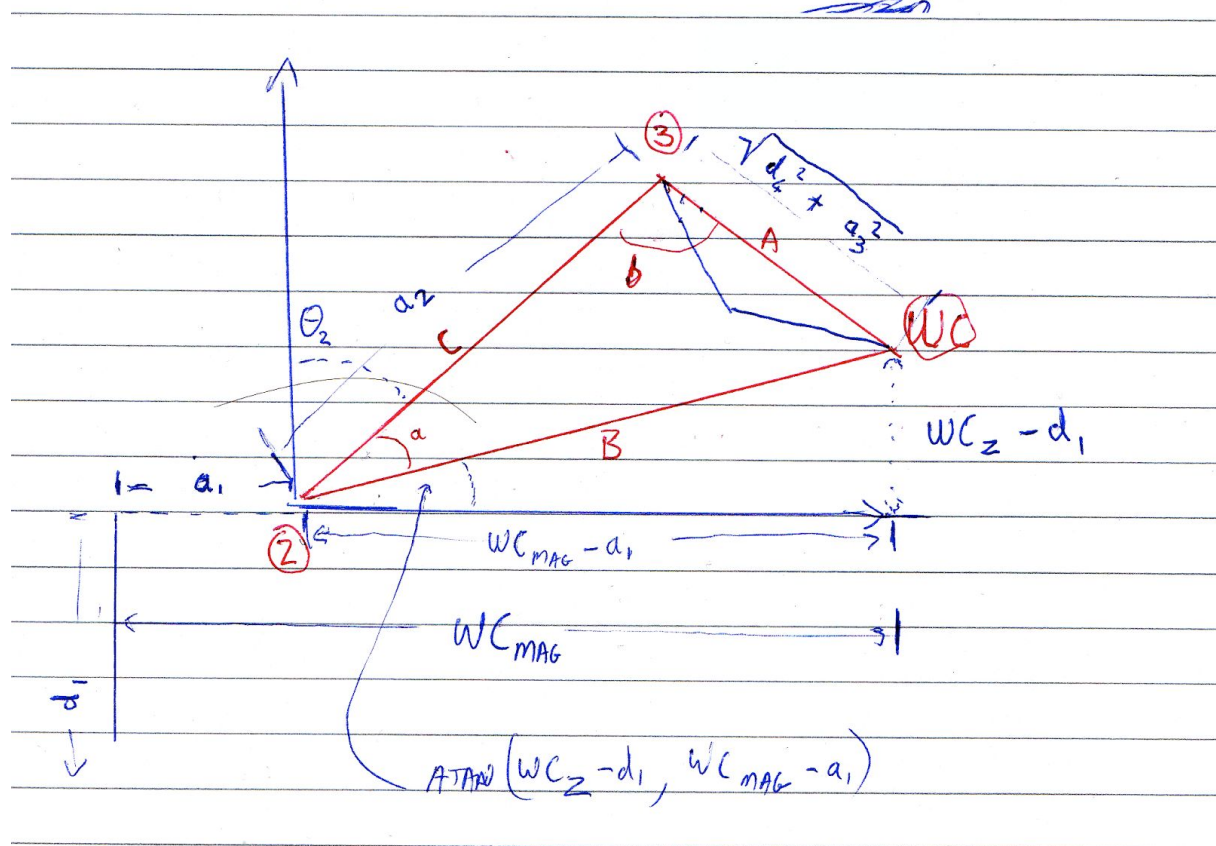 3
√d₄² + a₃²
A
b
a2
WC
θ₂
C
a
B
WC_Z - d₁
a₁
2
WC_MAG - a₁
WC_MAG
d₁
ATAN(WC_Z - d₁, WC_MAG - a₁)